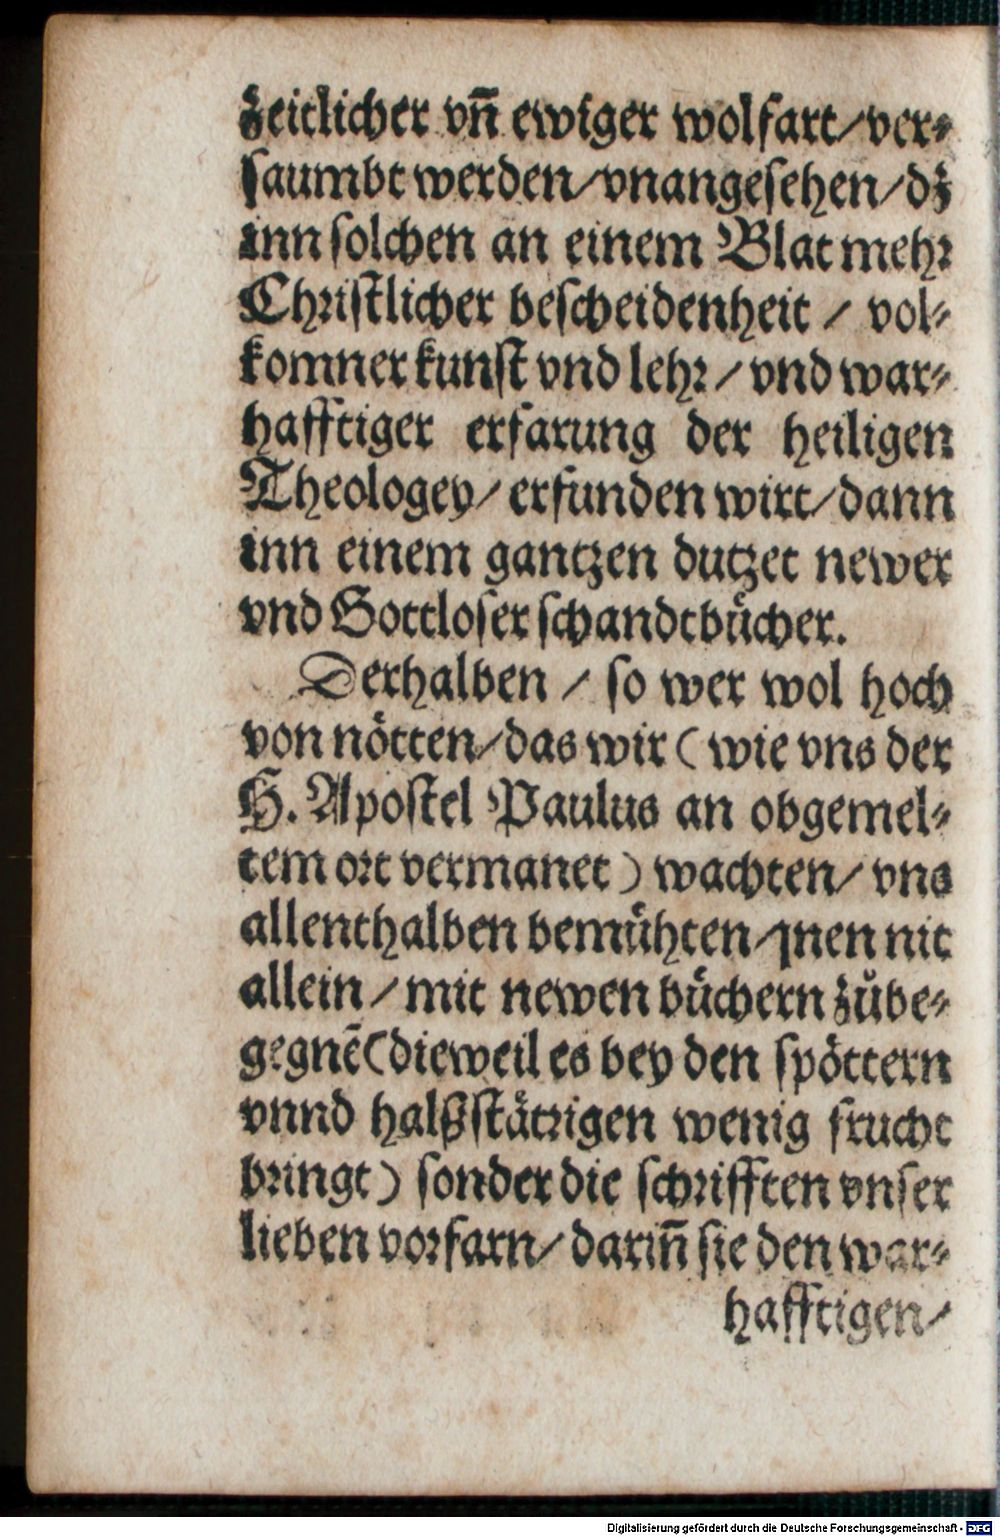 zeitlicher vn̄ ewiger wolfart/ver⸗
saumbt werden/vnangesehen/dz
inn solchen an einem Blat mehr
Christlicher bescheidenheit / vol⸗
komner kunst vnd lehr / vnd war⸗
hafftiger erfarung der heiligen
Theologey/ erfunden wirt/dann
inn einem gantzen dutzet newer
vnd Gottloser schandtbuͤcher.
Derhalben / so wer wol hoch
von noͤtten/das wir (wie vns der
H. Apostel Paulus an obgemel⸗
tem ort vermanet) wachten/ vns
allenthalben bemuͤhten/jnen nit
allein / mit newen buͤchern zůbe⸗
gegnē (dieweil es bey den spoͤttern
vnnd halßstaͤtrigen wenig frucht
bringt) sonder die schrifften vnser
lieben vorfarn/ darin̄ sie den war⸗
hafftigen/
Digitalisierung gefördert durch die Deutsche Forschungsgemeinschaft - DFG